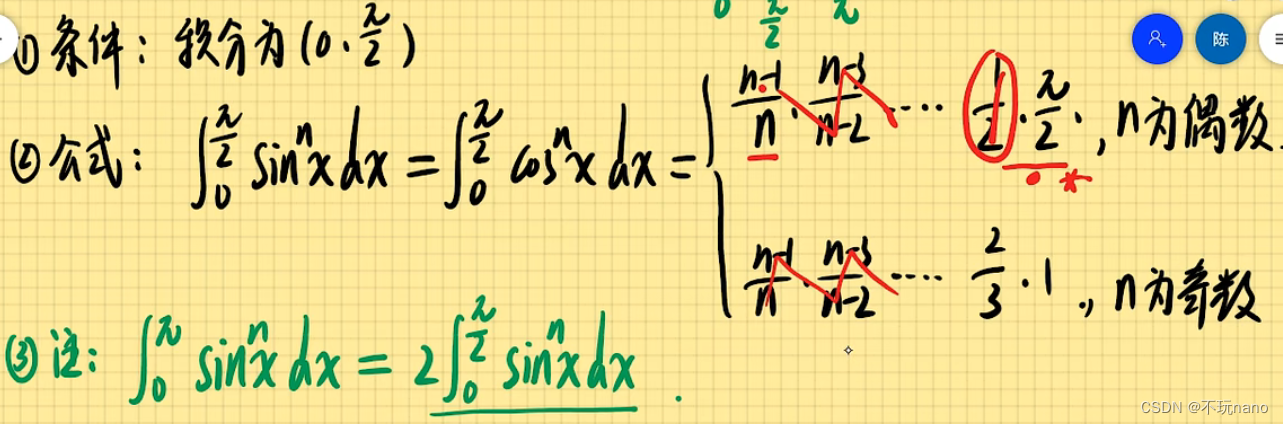 0 π/2 π
① 条件：积分为(0·π/2)
陈
② 公式：∫₀^(π/2) sinⁿx dx = ∫₀^(π/2) cosⁿx dx = { (n-1)/n · (n-3)/(n-2) ···· 1/2 · π/2 ·, n为偶数.
(n-1)/n · (n-3)/(n-2) ···· 2/3 · 1 ., n为奇数
③ 注：∫₀^π sinⁿx dx = 2∫₀^(π/2) sinⁿx dx .
CSDN @不玩nano